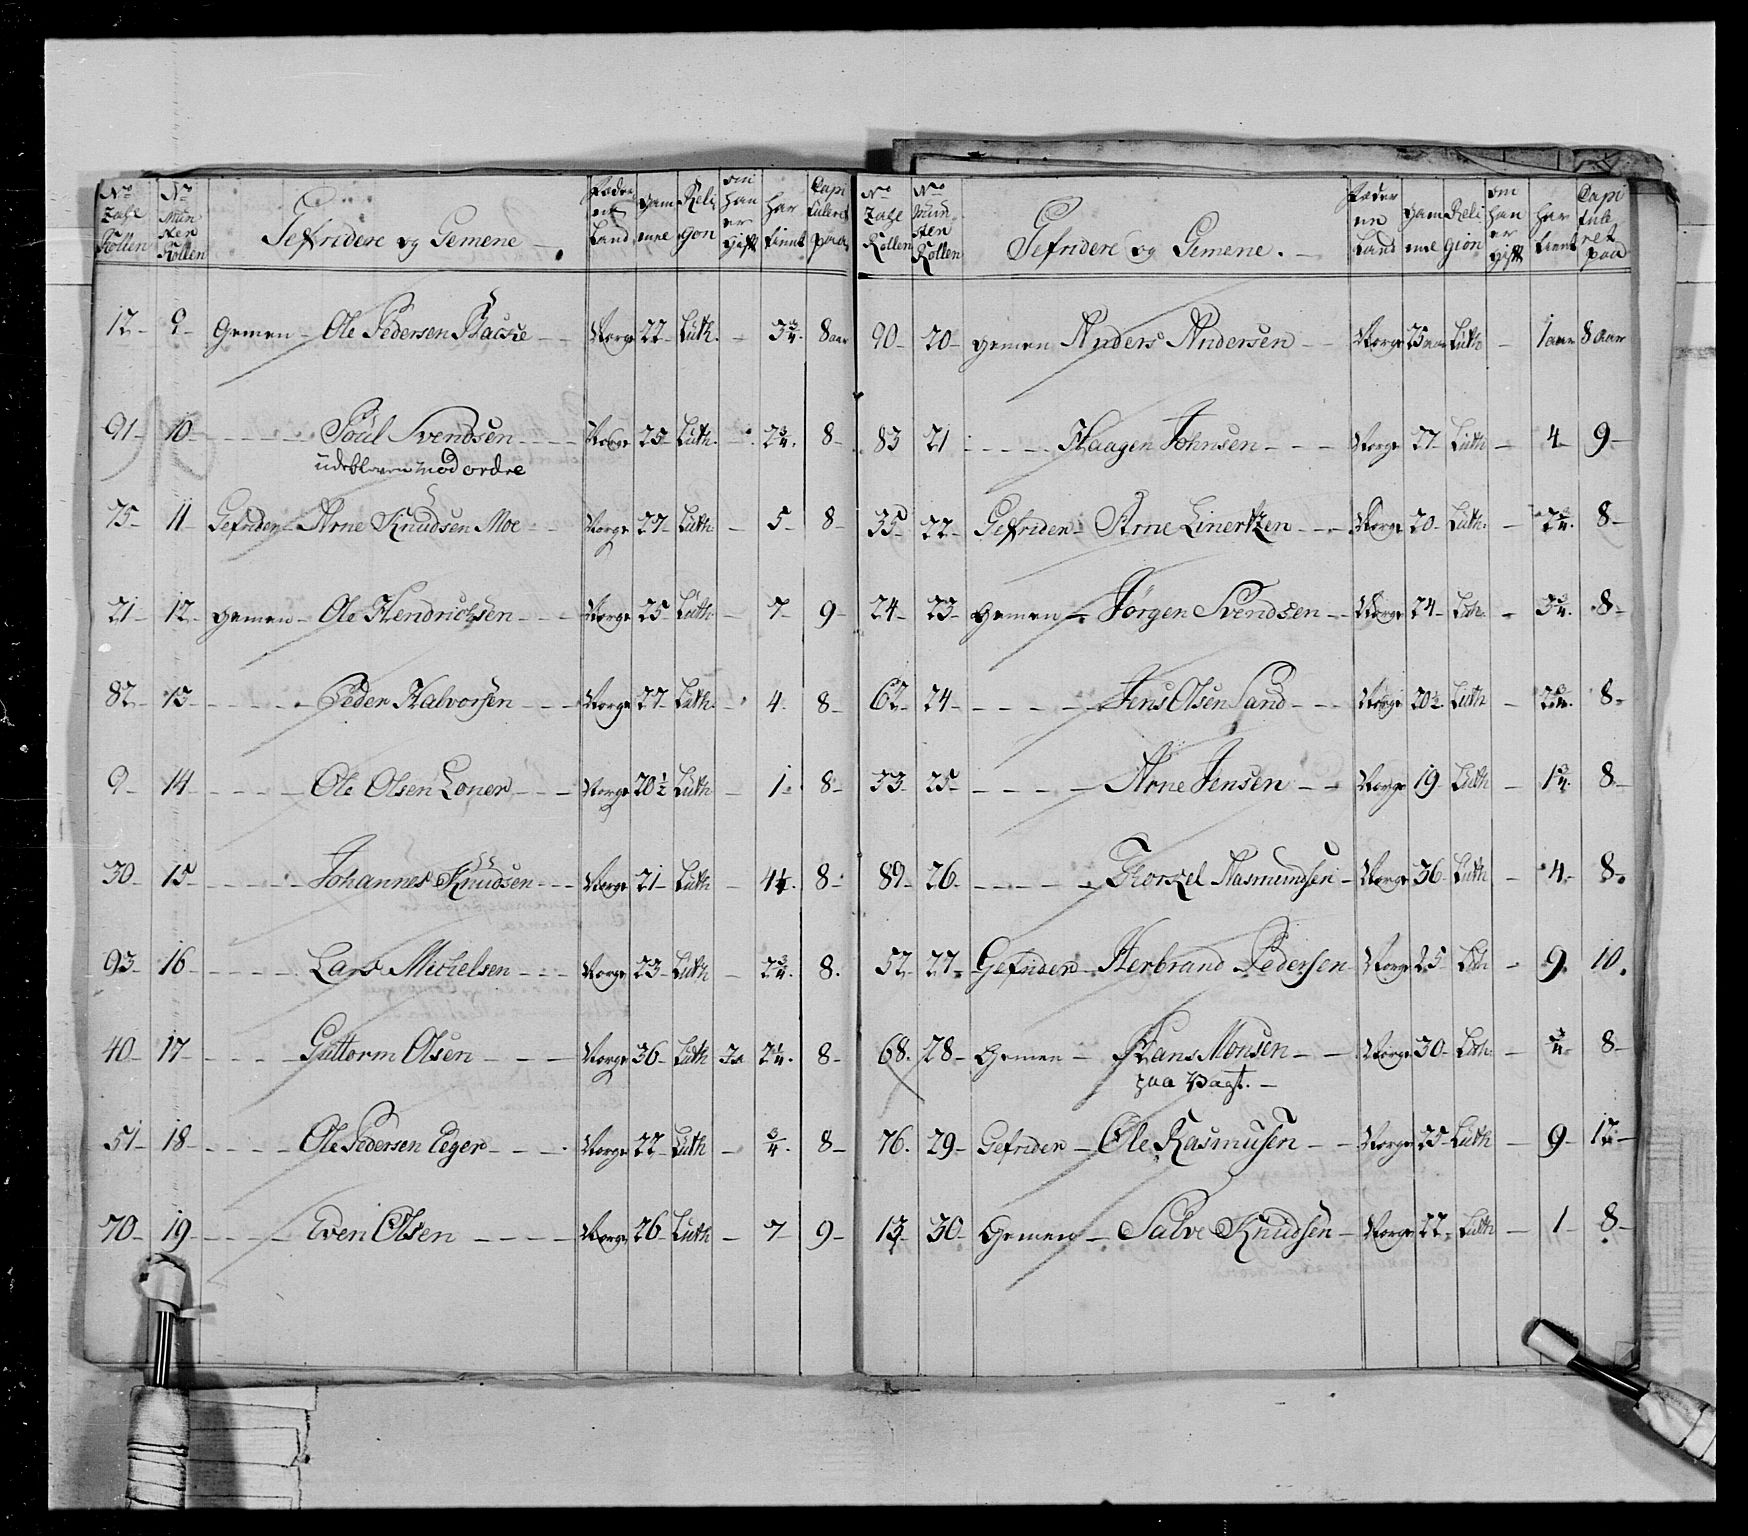 No Zahl Rollen | No Mün sten Rollen | Gefridere og Gemene | Fæder ne Land | gam mel | Reli gion | om han er gift | har tient | Capi tuleret paa
12 - 9 - Gemen - Ole Pedersen Backe - Norge 22 - Luth. - 3 3/4. 8 aar
91 - 10 - Poül Svendsen - Norge 25 Luth. - 2 3/4. 8 -
udebleven mod ordre
75 - 11 - Gefriden - Arne Knudsen Moe - Norge 27 - Luth - 5 - 8 -
21 - 12 - Gemen - Ole Hendrichsen - Norge 25 - Luth. - 7 - 9 -
82 - 13 - Peder Halvorsen - Norge 27 - Luth. - 4 - 8 -
9 - 14 - Ole Olsen Loner - Norge 20 1/2 Luth - 1 - 8 -
30 - 15 - Johannes Knudsen - Norge 21 - Luth - 4 1/4. 8 -
93 - 16 - Lars Michelsen - Norge 23 - Luth - 2 3/4. 8.
40 - 17 - Guttorm Olsen - Norge 36 - Luth Ja 2 1/4. 8 -
51 - 18 - Ole Pedersen Eeger - Norge 22 - Luth - 3/4. 8 -
70 - 19 - Even Olsen - Norge 26 - Luth - 7 - 9 -
No Zahl Rollen | No Mün sten Rollen | Gefridere og Gemene. | Fæder ne Land | gam mel | Reli gion | om han er gift | har tient | Capi tule ret paa
90 - 20 - Gemen Anders Andersen - Norge 25 aar Luth - 1 aar 8 aar
83 21 - Haagen Johnsen - Norge 27 - Luth - 4 - 9 -
35 - 22 - Gefriden - Arne Linertzen - Norge 20 - Luth. - 2 3/4. 8 -
24 - 23 - Gemen - Jörgen Svendsen - Norge 24 - Luth. - 3 3/4. 8 -
62 - 24 - Jens Olsen Sand - Norge 20 1/2 Luth - 2 3/4. 8 -
33 - 25 - Arne Jensen - Norge 19 - Luth - 1 3/4. 8 -
89 - 26 - Thorkel Aasmundsen - Norge 36 - Luth - 4 - 8.
52 - 27 - Gefriden - Herbrand Pedersen - Norge 25 - Luth - 9. 10.
68. 28 - Gemen - Hans Monsen - Norge 30 - Luth. - 3/4 - 8 -
paa Vagt. -
76. 29 - Gefriden - Ole Rasmusen - Norge 25 - Luth - 9 - 12 -
13 - 30 - Gemen - Salve Knudsen - Norge 22 - Luth - 1 - 8 -